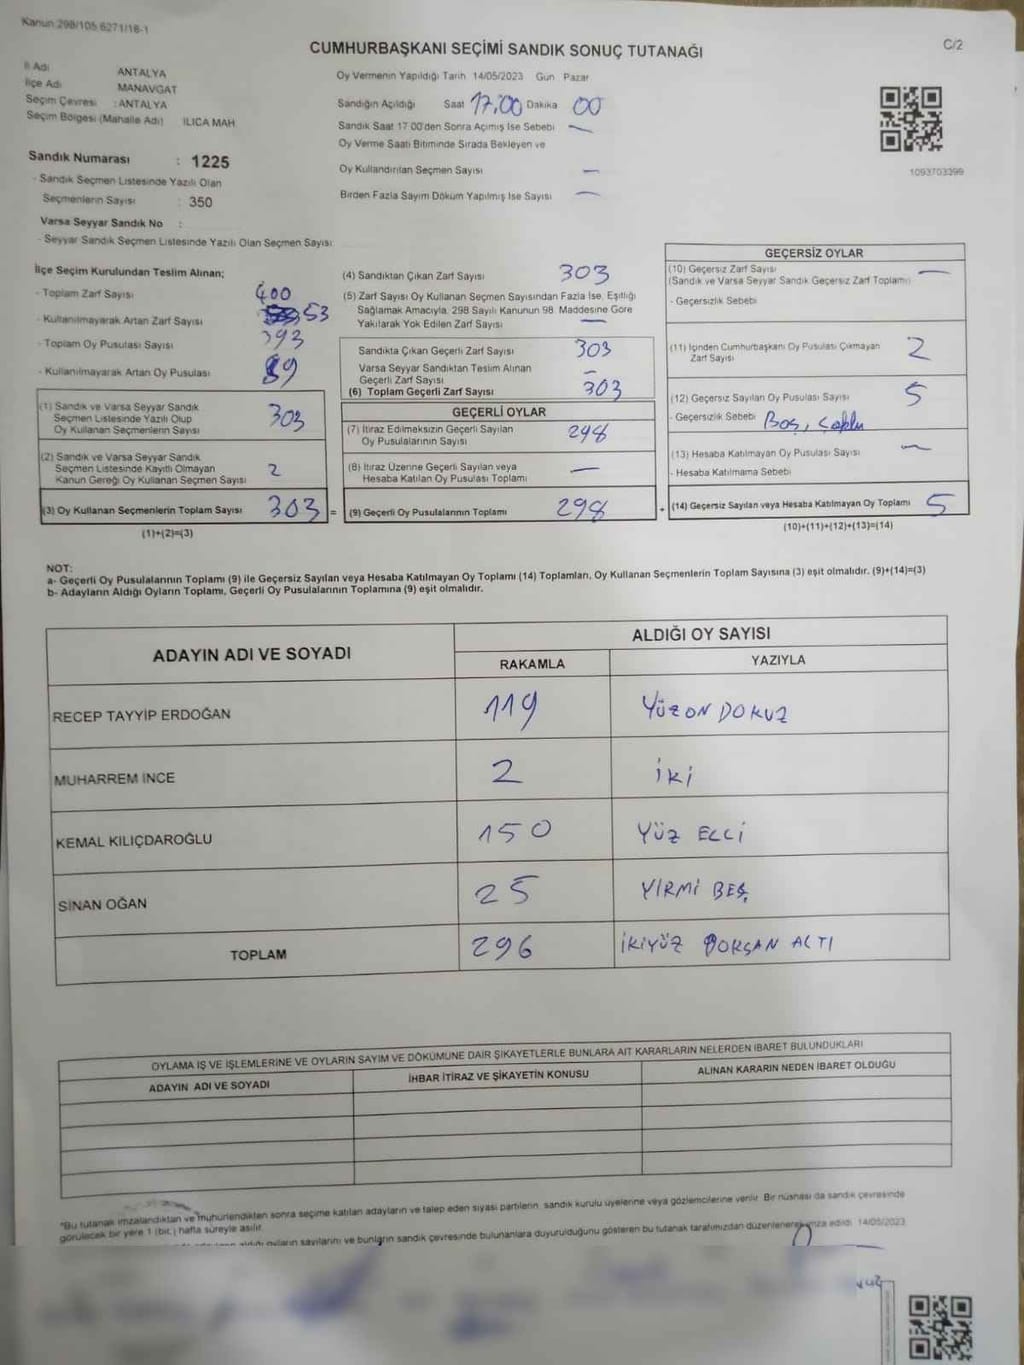 Kanun 298/105 6271/18-1
C/2
CUMHURBAŞKANI SEÇİMİ SANDIK SONUÇ TUTANAĞI
İl Adı ANTALYA
İlçe Adı MANAVGAT
Seçim Çevresi : ANTALYA
Seçim Bölgesi (Mahalle Adı) ILICA MAH.
Sandık Numarası : 1225
- Sandık Seçmen Listesinde Yazılı Olan
Seçmenlerin Sayısı : 350
Varsa Seyyar Sandık No :
- Seyyar Sandık Seçmen Listesinde Yazılı Olan Seçmen Sayısı:
Oy Vermenin Yapıldığı Tarih 14/05/2023 Gün Pazar
Sandığın Açıldığı Saat 17.00 Dakika 00
Sandık Saat 17:00'den Sonra Açılmış İse Sebebi —
Oy Verme Saati Bitiminde Sırada Bekleyen ve
Oy Kullandırılan Seçmen Sayısı —
Birden Fazla Sayım Döküm Yapılmış İse Sayısı —
1093703399
İlçe Seçim Kurulundan Teslim Alınan;
- Toplam Zarf Sayısı 400
- Kullanılmayarak Artan Zarf Sayısı 53
- Toplam Oy Pusulası Sayısı 393
- Kullanılmayarak Artan Oy Pusulası 89
(1) Sandık ve Varsa Seyyar Sandık
Seçmen Listesinde Yazılı Olup
Oy Kullanan Seçmenlerin Sayısı 303
(2) Sandık ve Varsa Seyyar Sandık
Seçmen Listesinde Kayıtlı Olmayan
Kanun Gereği Oy Kullanan Seçmen Sayısı 2
(3) Oy Kullanan Seçmenlerin Toplam Sayısı 303 =
(1)+(2)=(3)
(4) Sandıktan Çıkan Zarf Sayısı 303
(5) Zarf Sayısı Oy Kullanan Seçmen Sayısından Fazla İse, Eşitliği
Sağlamak Amacıyla, 298 Sayılı Kanunun 98. Maddesine Göre
Yakılarak Yok Edilen Zarf Sayısı —
Sandıkta Çıkan Geçerli Zarf Sayısı 303
Varsa Seyyar Sandıktan Teslim Alınan
Geçerli Zarf Sayısı —
(6) Toplam Geçerli Zarf Sayısı 303
GEÇERLİ OYLAR
(7) İtiraz Edilmeksizin Geçerli Sayılan
Oy Pusulalarının Sayısı 298
(8) İtiraz Üzerine Geçerli Sayılan veya
Hesaba Katılan Oy Pusulası Toplamı —
(9) Geçerli Oy Pusulalarının Toplamı 298 +
GEÇERSİZ OYLAR
(10) Geçersiz Zarf Sayısı —
(Sandık ve Varsa Seyyar Sandık Geçersiz Zarf Toplamı)
- Geçersizlik Sebebi
(11) İçinden Cumhurbaşkanı Oy Pusulası Çıkmayan
Zarf Sayısı 2
(12) Geçersiz Sayılan Oy Pusulası Sayısı 5
- Geçersizlik Sebebi Boş,
(13) Hesaba Katılmayan Oy Pusulası Sayısı —
- Hesaba Katılmama Sebebi
(14) Geçersiz Sayılan veya Hesaba Katılmayan Oy Toplamı 5
(10)+(11)+(12)+(13)=(14)
NOT:
a- Geçerli Oy Pusulalarının Toplamı (9) ile Geçersiz Sayılan veya Hesaba Katılmayan Oy Toplamı (14) Toplamları, Oy Kullanan Seçmenlerin Toplam Sayısına (3) eşit olmalıdır. (9)+(14)=(3)
b- Adayların Aldığı Oyların Toplamı, Geçerli Oy Pusulalarının Toplamına (9) eşit olmalıdır.
ADAYIN ADI VE SOYADI
ALDIĞI OY SAYISI
RAKAMLA YAZIYLA
RECEP TAYYİP ERDOĞAN 119 YÜZON DOKUZ
MUHARREM İNCE 2 İKİ
KEMAL KILIÇDAROĞLU 150 YÜZ ELLİ
SİNAN OĞAN 25 YİRMİ BEŞ
TOPLAM 296 İKİYÜZ DOKSAN ALTI
OYLAMA İŞ VE İŞLEMLERİNE VE OYLARIN SAYIM VE DÖKÜMÜNE DAİR ŞİKAYETLERLE BUNLARA AİT KARARLARIN NELERDEN İBARET BULUNDUKLARI
ADAYIN ADI VE SOYADI İHBAR İTİRAZ VE ŞİKAYETİN KONUSU ALINAN KARARIN NEDEN İBARET OLDUĞU
"Bu tutanak imzalandıktan ve mühürlendikten sonra seçime katılan adayların ve talep eden siyasi partilerin, sandık kurulu üyelerine veya gözlemcilerine verilir. Bir nüshası da sandık çevresinde
görülecek bir yere 1 (bir) hafta süreyle asılır.
aldığı oyların sayılarını ve bunların sandık çevresinde bulunanlara duyurulduğunu gösteren bu tutanak tarafımızdan düzenlenerek imza edildi. 14/05/2023